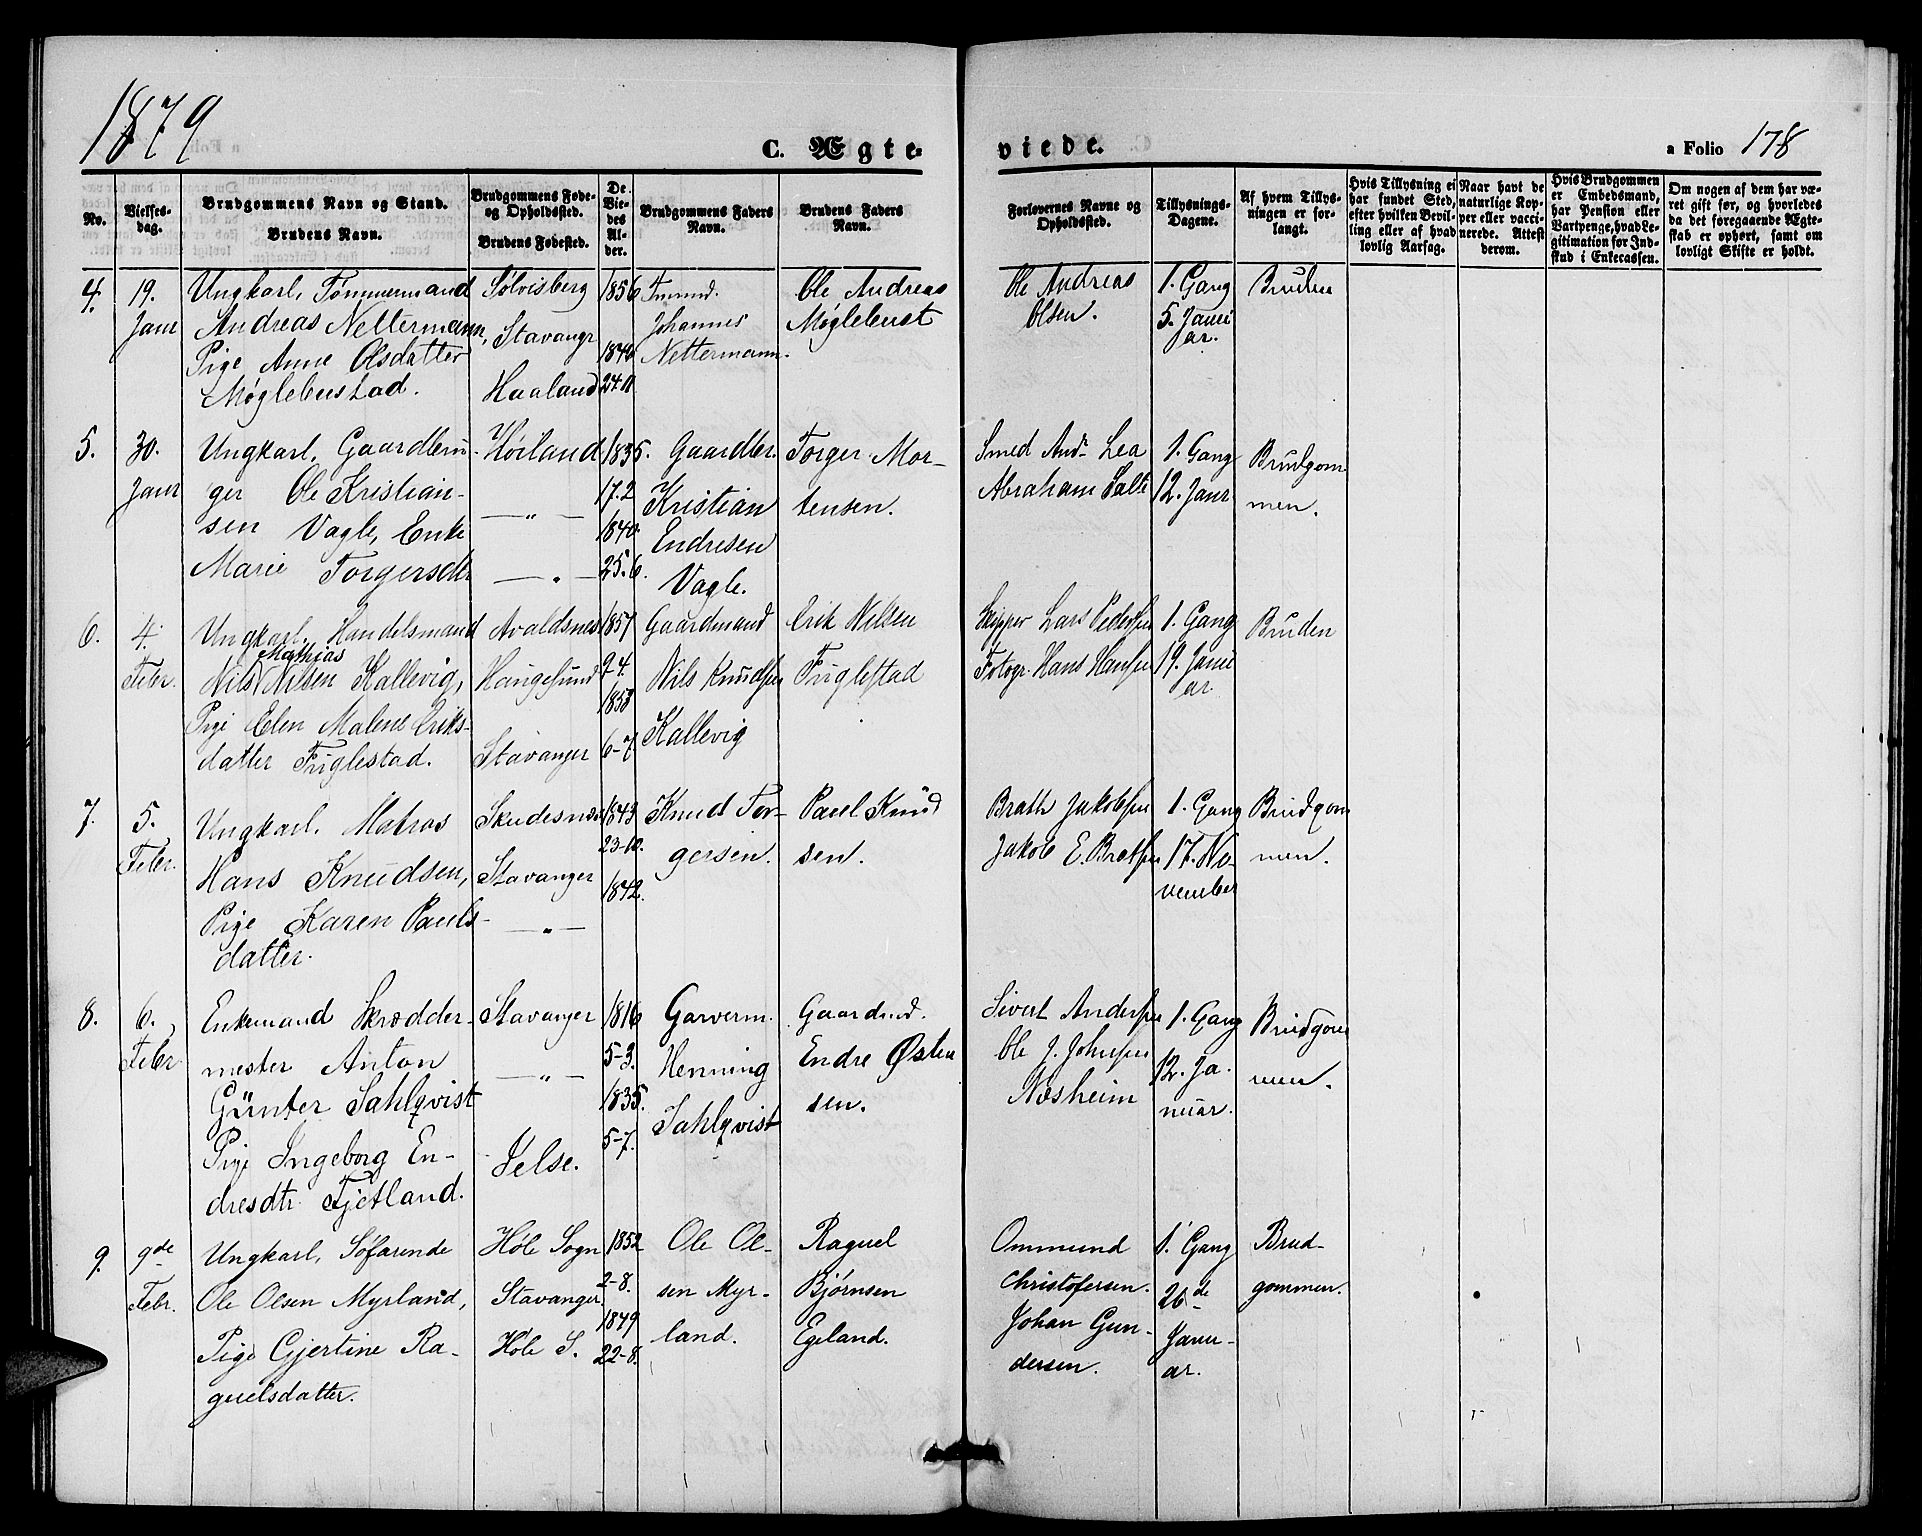 1879
C. Ægte-
viede.
a Folio 178
No.
Vielses-
dag.
Brudgommens Navn og Stand.
Brudens Navn.
Brudgommens Føde-
og Opholdssted.
Brudens Fødested.
De
Vie-
des
Al-
der.
Brudgommens Faders
Navn.
Brudens Faders
Navn.
Forlovernes Navne og
Opholdssted.
Tillysnings-
Dagene.
Af hvem Tillys-
ningen er for-
langt.
Hvis Tillysning ei
har fundet Sted,
efter hvilken Bevil-
ling eller af hvad
lovlig Aarsag.
Naar havt de
naturlige Kop-
per eller vacci-
nerede. Attest
derom.
Hvis Brudgommen
er Embedsmand,
har Pension eller
Vartpenge, hvad Le-
gitimation for Ind-
skud i Enkecassen.
Om nogen af dem har væ-
ret gift før, og hvorledes
da det foregaaende Ægte-
skab er ophørt, samt om
lovligt Skifte er holdt.
4.
19.
Janr
Ungkarl, Tømmermand
Andreas Nettermann,
Pige Anne Olsdatter
Møglebustad.
Sølvisberg
Stavangr
Haaland
1856
1848
24.11
Johannes
Nettermann.
Ole Andreas
Møglebust
Ole Andreas
Olsen.
1. Gang
5. Janu
ar.
Bruden
5.
30.
Janr
Ungkarl, Gaardbru-
ger Ole Kristian-
sen Vagle, Enke
Marie Torgersdtr
Høiland
— „ —
— „ —
1835.
17.2
1840.
25.6.
Gaardbr.
Kristian
Endresen
Vagle.
Torger Mor-
tensen.
Smed And. Lea
Abraham Salte
1. Gang
12. Janr.
Brudgom
men.
6.
4.
Febr.
Ungkarl. Handelsmand
Mathias
Nils Nilsen Kallevig,
Pige Elen Malene Eriks-
datter Fuglestad.
Avaldsnes
Haugesund
Stavanger
1857
2-4.
1858
6-7.
Gaardmand
Nils Knudsen
Kallevig
Erik Nilsen
Fuglestad
Skipper Lars Pedersen
Fotogr. Hans Hansen
1. Gang
19. Janu
ar.
Bruden
7.
5.
Febr.
Ungkarl. Matros
Hans Knudsen,
Pige Karen Pauls-
datter.
Skudesnæs
Stavanger
— „ —
1843
23-10.
1842.
Knud Tor-
gersen.
Paul Knud
sen.
Brath Jakobsen
Jakob E. Bratsen
1. Gang
17. No-
vember
Brudgom
men.
8.
6.
Febr
Enkemand Skrædder-
mester Anton
Günter Sahlqvist
Pige Ingeborg En-
dresdtr Tjetland.
Stavanger
— „ —
Jelse.
1816
5-3.
1835.
5-7.
Garverm.
Henning
Sahlqvist
Gaardmd.
Endre Østen
sen.
Sivert Andersen
Ole J. Johnsen
Næsheim
1. Gang
12. Ja.
nuar.
Brudgom
men.
9.
9de
Febr.
Ungkarl, Søfarende
Ole Olsen Myrland,
Pige Gjertine Ra-
guelsdatter.
Høle Sogn
Stavanger
Høle S.
1852
2-8.
1849
22-8.
Ole Ol-
sen Myr-
land.
Raguel
Bjørnsen
Egeland.
Ommund
Christofersen.
Johan Gun-
dersen.
1. Gang
26de
Janu-
ar.
Brud-
gommen.